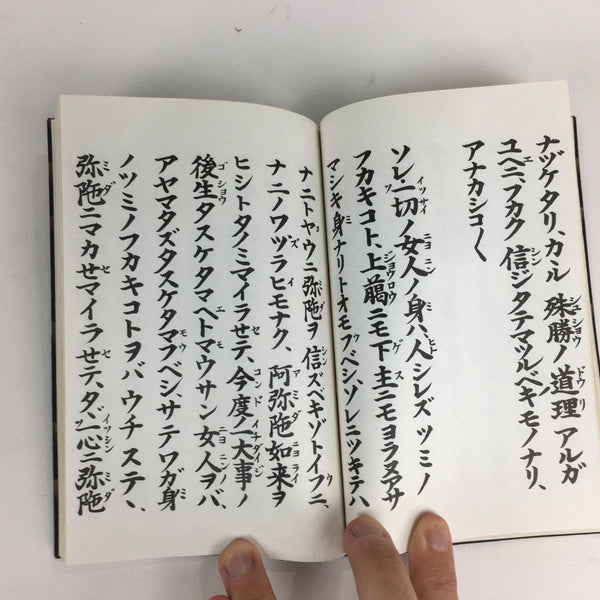 ナヅケタリ、カヽル 殊勝ノ道理 アルガ
ユヘニ、フカク 信ジタテマツルベキモノナリ、
アナカシコ〱
ソレ一切ノ女人ノ身ハ、人シレズ ツミノ
フカキコト、上臈ニモ下主ニモヨラヌアサ
マシキ身ナリトオモフベシ、ソレニツキテハ
ナニトヤウニ弥陁ヲ 信ズベキゾトイフニ、
ナニノワヅラヒモナク、阿弥陁如来ヲ
ヒシトタノミマイラせテ、今度ノ一大事ノ
後生タスケタマヘトマウサン 女人ヲバ、
アヤマタズタスケタマフベシ、サテワガ身
ノツミノフカキコトヲバ ウチステヽ、
弥陁ニマカせマイラせテ、タヾ一心ニ弥陁